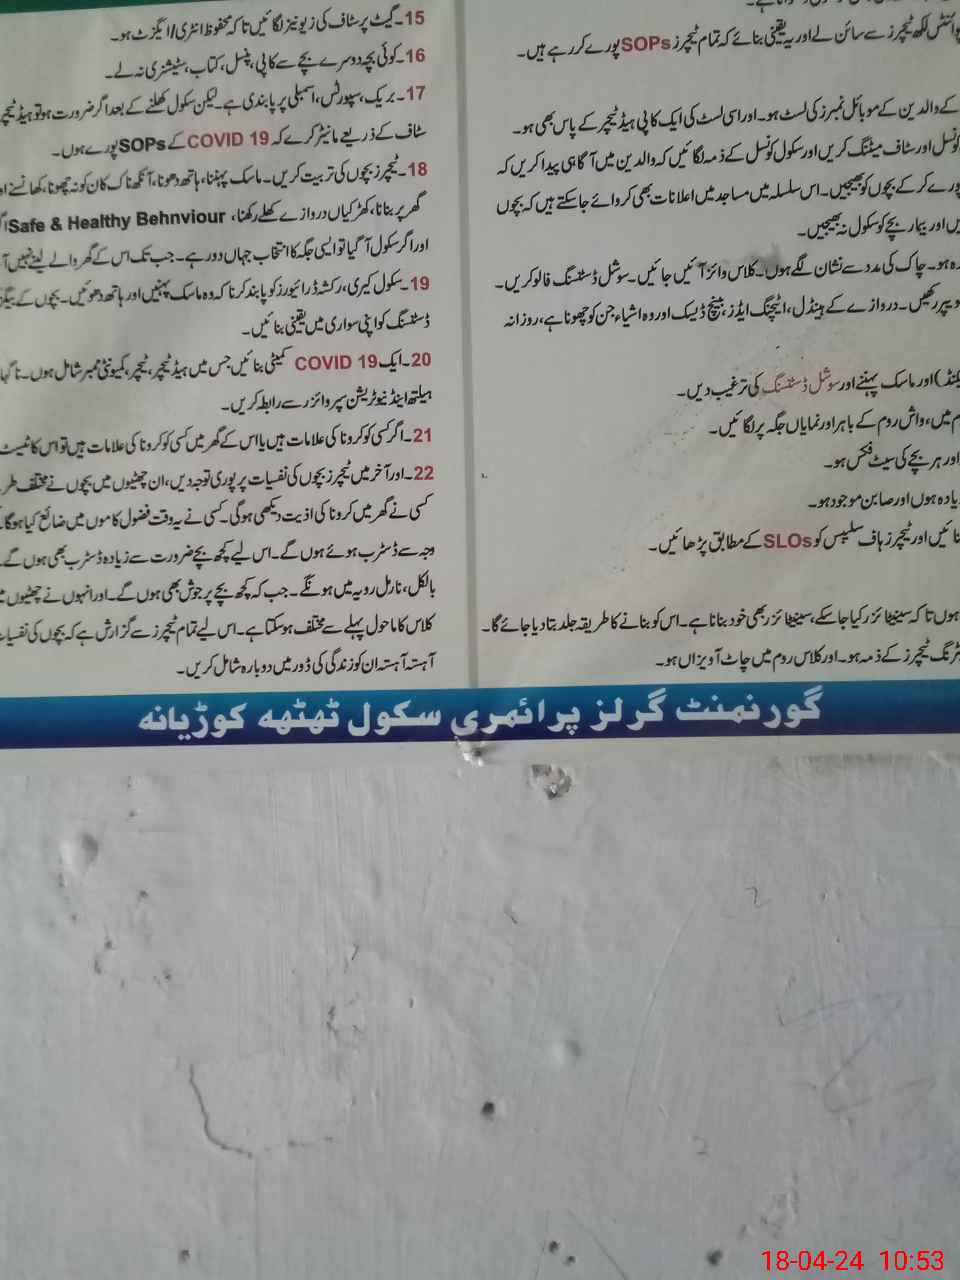 پوائنٹس لکھ ٹیچرز سے سائن لے اور یہ یقینی بنائے کہ تمام ٹیچرز SOPs پورے کر رہے ہیں۔
کے والدین کے موبائل نمبرز کی لسٹ ہو۔ اور اسی لسٹ کی ایک کاپی ہیڈ ٹیچر کے پاس بھی ہو۔
کونسل اور سٹاف میٹنگ کریں اور سکول کونسل کے ذمہ لگائیں کہ والدین میں آگاہی پیدا کریں کہ
پورے کر کے بچوں کو بھیجیں۔ اس سلسلہ میں مساجد میں اعلانات بھی کروائے جا سکتے ہیں کہ بچوں
یں اور بیمار بچے کو سکول نہ بھیجیں۔
دہ ہو۔ چاک کی مدد سے نشان لگے ہوں۔ کلاس وائز آئیں جائیں۔ سوشل ڈسٹنسنگ فالو کریں۔
ویپر رکھیں۔ دروازے کے ہینڈل، ٹیچنگ ایڈز، بینچ ڈیسک اور وہ اشیاء جن کو چھونا ہے، روزانہ
یکنڈ) اور ماسک پہننے اور سوشل ڈسٹنسنگ کی ترغیب دیں۔
م میں، واش روم کے باہر اور نمایاں جگہ پر لگائیں۔
اور ہر بچے کی سیٹ فکس ہو۔
یادہ ہوں اور صابن موجود ہو۔
نائیں اور ٹیچرز ہاف سلیبس کو SLOs کے مطابق پڑھائیں۔
ہوں تاکہ سینیٹائز کیا جا سکے، سینیٹائزر بھی خود بنانا ہے۔ اس کو بنانے کا طریقہ جلد بتا دیا جائے گا۔
ٹرنگ ٹیچرز کے ذمہ ہو۔ اور کلاس روم میں چاٹ آویزاں ہو۔
15۔ گیٹ پر سٹاف کی ڈیوٹیز لگائیں تاکہ محفوظ انٹری/ایگزٹ ہو۔
16۔ کوئی بچہ دوسرے بچے سے کاپی، پنسل، کتاب، سٹیشنری نہ لے۔
17۔ بریک، سپورٹس، اسمبلی پر پابندی ہے۔ لیکن سکول کھلنے کے بعد اگر ضرورت ہو تو ہیڈ ٹیچر
سٹاف کے ذریعے مانیٹر کرے کہ COVID 19 کے SOPs پورے ہوں۔
18۔ ٹیچرز بچوں کی تربیت کریں۔ ماسک پہننا، ہاتھ دھونا، آنکھ ناک کان کو نہ چھونا، کھانسنے او
گھر پر بنانا، کھڑکیاں دروازے کھلے رکھنا، Safe & Healthy Behnviour
اور اگر سکول آ گیا تو ایسی جگہ کا انتخاب جہاں دور رہے۔ جب تک اس کے گھر والے لینے نہیں آ
19۔ سکول کیری، رکشہ ڈرائیورز کو پابند کرنا کہ وہ ماسک پہنیں اور ہاتھ دھوئیں۔ بچوں کے بیگز
ڈسٹنسنگ کو اپنی سواری میں یقینی بنائیں۔
20۔ ایک COVID 19 کمیٹی بنائیں جس میں ہیڈ ٹیچر، ٹیچر، کمیونٹی ممبر شامل ہوں۔ ناگہا
ہیلتھ اینڈ نیوٹریشن سپروائزر سے رابطہ کریں۔
21۔ اگر کسی کو کرونا کی علامات ہیں یا اس کے گھر میں کسی کو کرونا کی علامات ہیں تو اس کا ٹیسٹ
22۔ اور آخر میں ٹیچرز بچوں کی نفسیات پر پوری توجہ دیں، ان چھٹیوں میں بچوں نے مختلف طر
کسی نے گھر میں کرونا کی اذیت دیکھی ہو گی۔ کسی نے یہ وقت فضول کاموں میں ضائع کیا ہوگا۔
وجہ سے ڈسٹرب ہوئے ہوں گے۔ اس لیے کچھ بچے ضرورت سے زیادہ ڈسٹرب بھی ہوں گے۔
بالکل، نارمل رویہ میں ہونگے۔ جب کہ کچھ بچے پر جوش بھی ہوں گے۔ اور انہوں نے چھٹیوں میں
کلاس کا ماحول پہلے سے مختلف ہو سکتا ہے۔ اس لیے تمام ٹیچرز سے گزارش ہے کہ بچوں کی نفسیات
آہستہ آہستہ ان کو زندگی کی ڈور میں دوبارہ شامل کریں۔
گورنمنٹ گرلز پرائمری سکول ٹھٹھہ کوڑیانہ
18-04-24 10:53